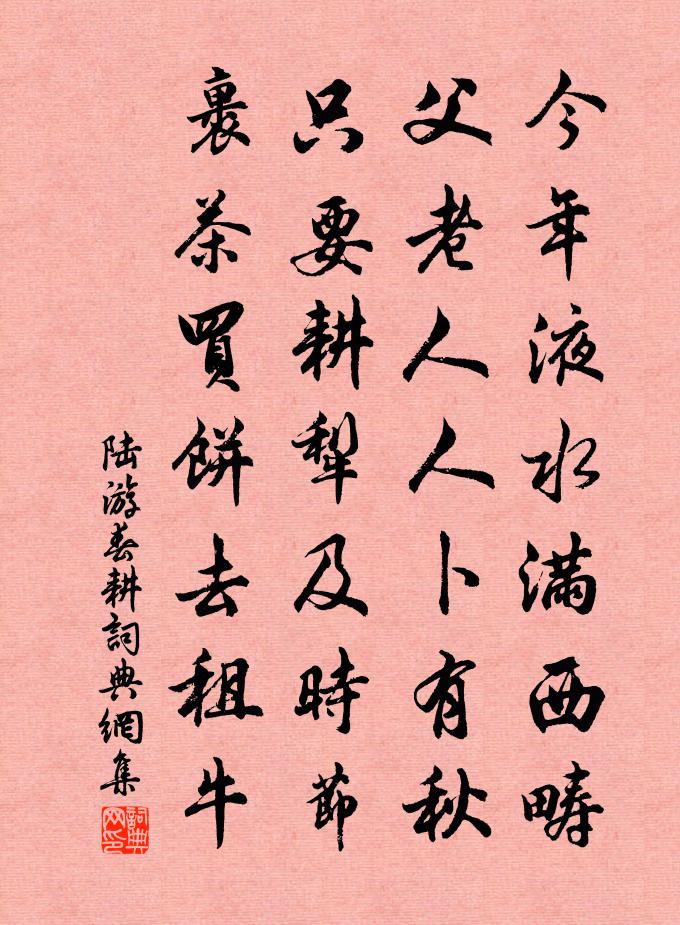 今年液水滿西疇
父老人人卜有秋
只要耕犁及時節
裹茶買餅去租牛
陆游春耕詞典網集
詞典网印